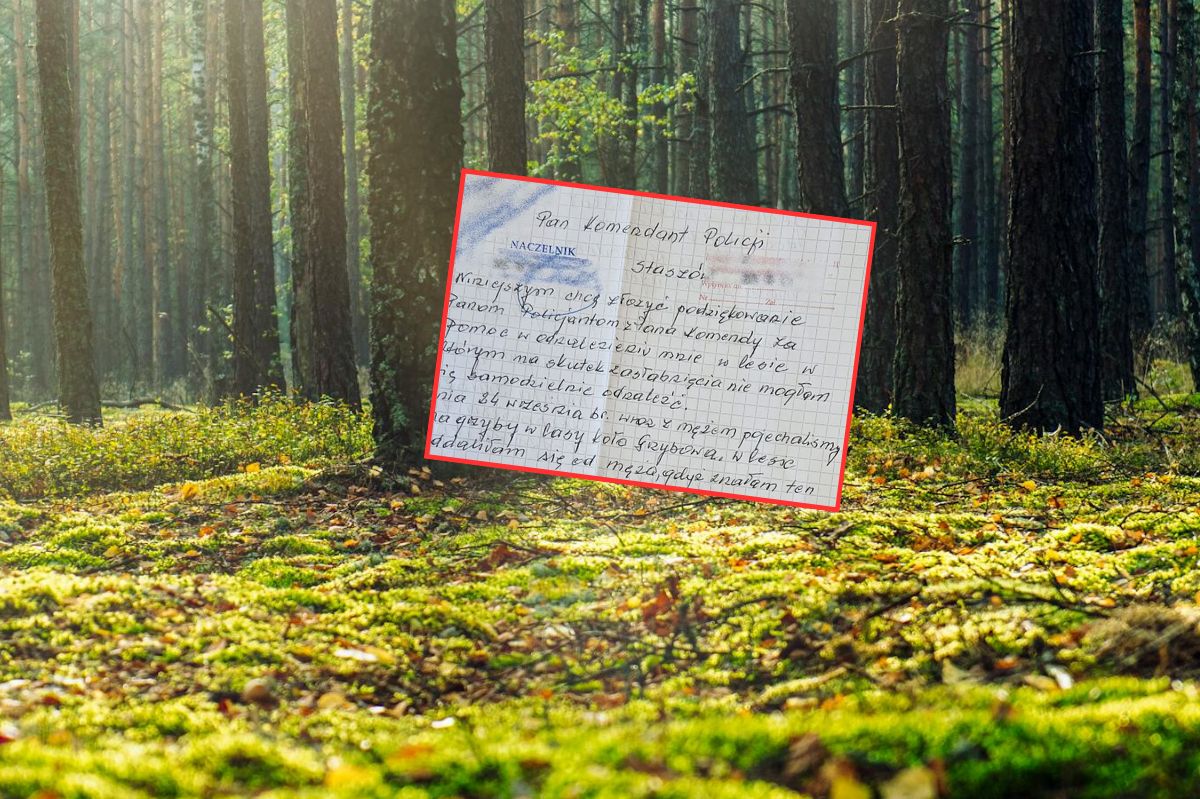 Pan Komendant Policji
NACZELNIK
Staszów
Wpłynęło dn.
Nr Zał.
Niniejszym chcę złożyć podziękowanie
Panom Policjantom z Tana Komendy za
Pomoc w odnalezieniu mnie w lesie w
którym na skutek zasłabnięcia nie mogłam
się samodzielnie odnaleźć.
nia 24 września br. wraz z mężem pojechaliśmy
na grzyby w lasy koło Grzybowa, w lesie
ddaliłam się od męża, gdyż znałam ten